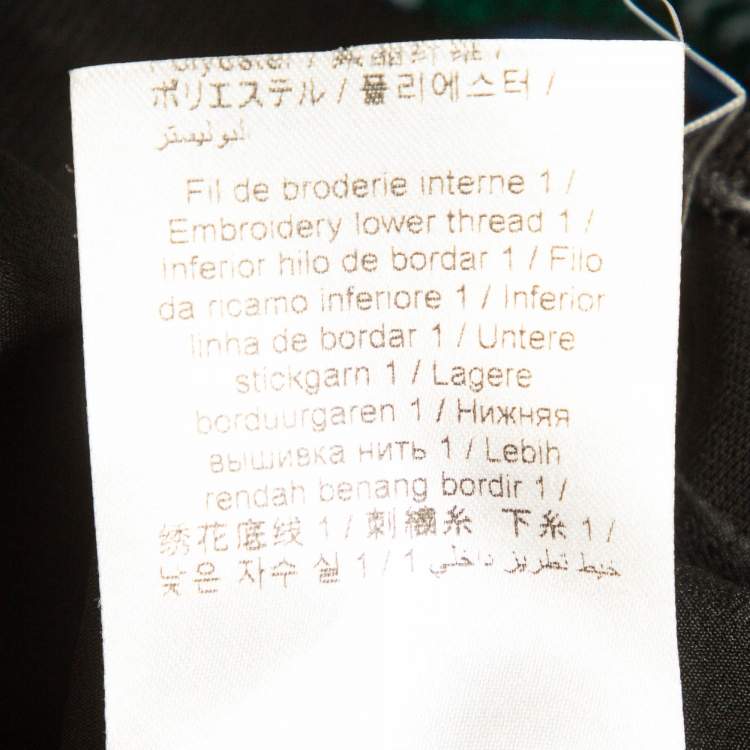 ポリエステル / 폴리에스터 /
بوليستر
Fil de broderie interne 1 /
Embroidery lower thread 1 /
Inferior hilo de bordar 1 / Filo
da ricamo inferiore 1 / Inferior
linha de bordar 1 / Untere
stickgarn 1 / Lagere
borduurgaren 1 / Нижняя
вышивка нить 1 / Lebih
rendah benang bordir 1 /
绣花底线 1 / 刺繍糸 下糸 1 /
낮은 자수 실 1 / 1 خيط تطريز داخلي